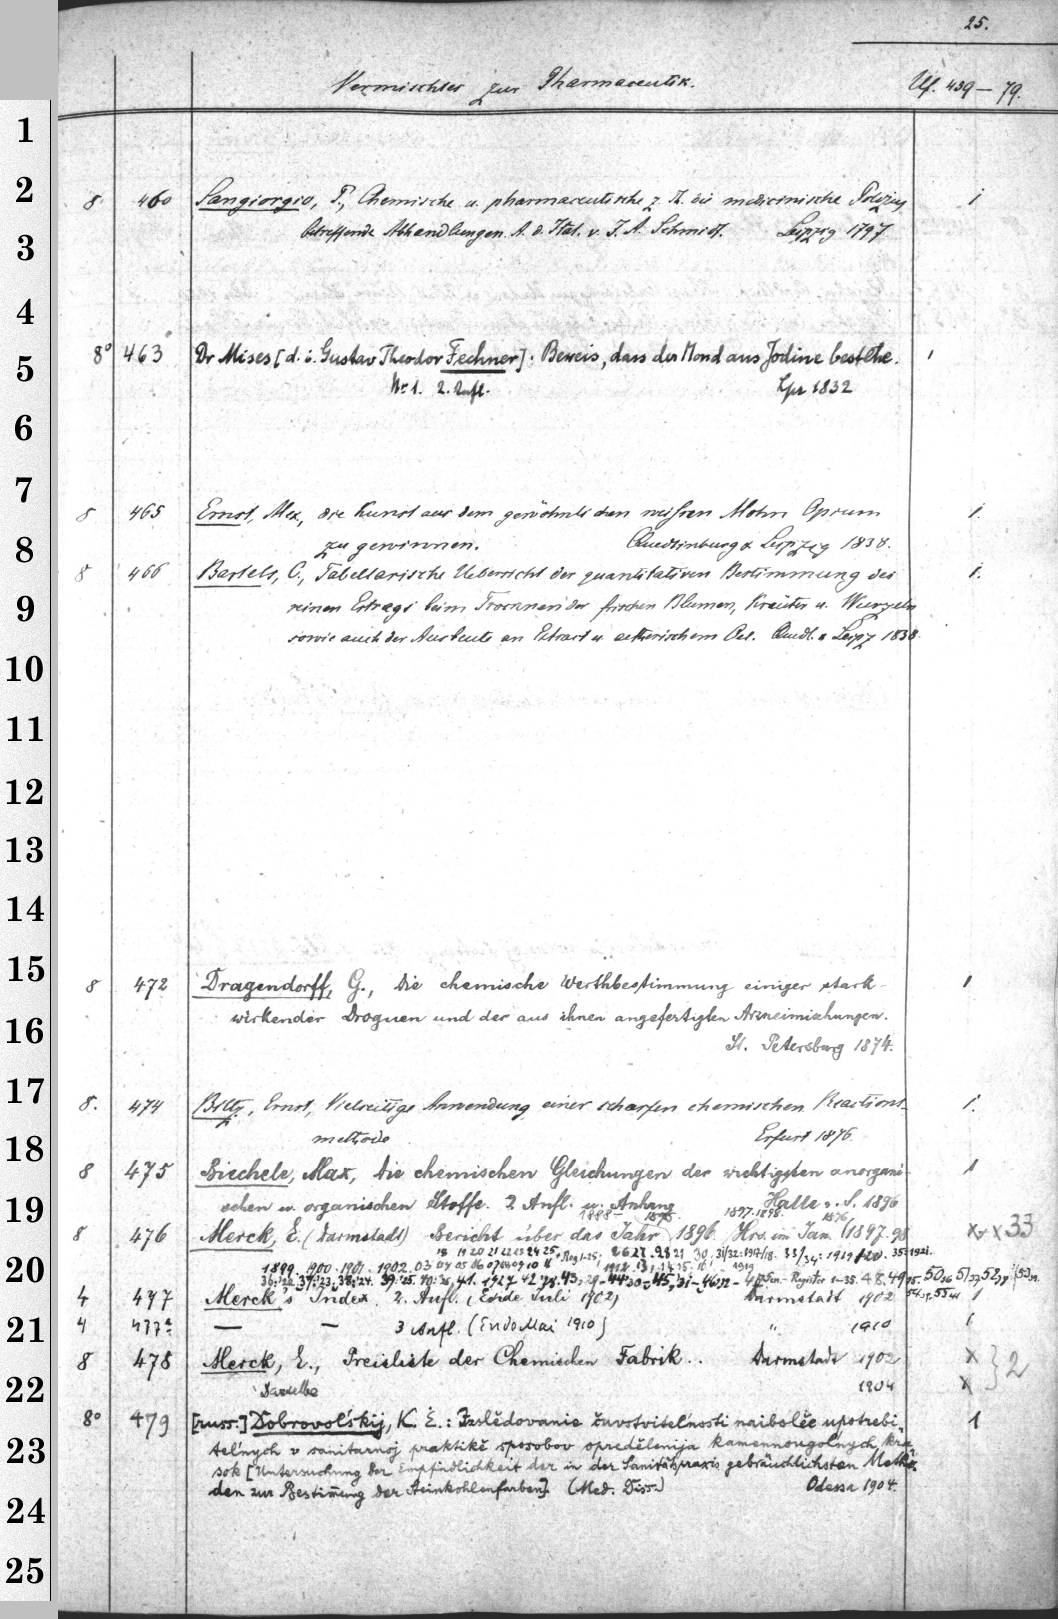 25.
Vermischtes zur Pharmaceutik. Uf. 439 – 79.
1
2
3
4
5
6
7
8
9
10
11
12
13
14
15
16
17
18
19
20
21
22
23
24
25
8 460 Sangiorgio, P., Chemische u. pharmaceutische z. Th. die medicinische Polizey 1
betreffende Abhandlungen. A. d. Ital. v. J. A. Schmidt. Leipzig 1797
8° 463 Dr Mises [d. i. Gustav Theodor Fechner]: Beweis, dass der Mond aus Jodine bestehe. 1
Nr 1. 2. Aufl. Lpz 1832
8 465 Ernst, Max, die Kunst aus dem gewöhnlichen weißen Mohn Opium 1.
zu gewinnen. Quedlinburg & Leipzig 1838.
8 466 Bartels, C., Tabellarische Uebersicht der quantitativen Bestimmung des 1.
reinen Ertrags beim Trocknen der frischen Blumen, Kräuter u. Wurzeln
sowie auch der Ausbeute an Extract u aetherischem Oel. Quedl. & Leipz 1838.
8 472 Dragendorff, G., Die chemische Werthbestimmung einiger stark- 1
wirkender Droguen und der aus ihnen angefertigten Arzneimischungen.
St. Petersburg 1874.
8. 474 Biltz, Ernst, Vielseitige Anwendung einer scharfen chemischen Reactions- 1.
methode Erfurt 1876.
8 475 Biechele, Max, Die chemischen Gleichungen der wichtigsten anorgani- 1
schen u. organischen Stoffe. 2 Aufl. u. Anhang Halle a. S. 1896
1897. 1898.
8 476 Merck, E. (Darmstadt) Bericht über das Jahr 1896. Hrs. im Jan. (1897. 98 33
1899. 1900. 1901. 1902. 03 04 05 06 07 08 09 10 11
4 477 Merck's Index. 2. Aufl. (Ende Juli 1902) Darmstadt 1902 1
4 477a — — 3 Aufl. (Ende Mai 1910) " 1910 1
8 478 Merck, E., Preisliste der Chemischen Fabrik.. Darmstadt 1902 x } 2
Dasselbe 1904 x
8° 479 [russ.] Dobrovol'skij, K. E.: Izslědovanie čuvstvitel'nosti naibolěe upotrebi- 1
tel'nych v sanitarnoj praktikě sposobov opredělenija kamennougol'nych kra-
sok [Untersuchung der Empfindlichkeit der in der Sanitätspraxis gebräuchlichsten Metho-
den zur Bestimmung der Steinkohlenfarben]. (Med. Diss.) Odessa 1904.